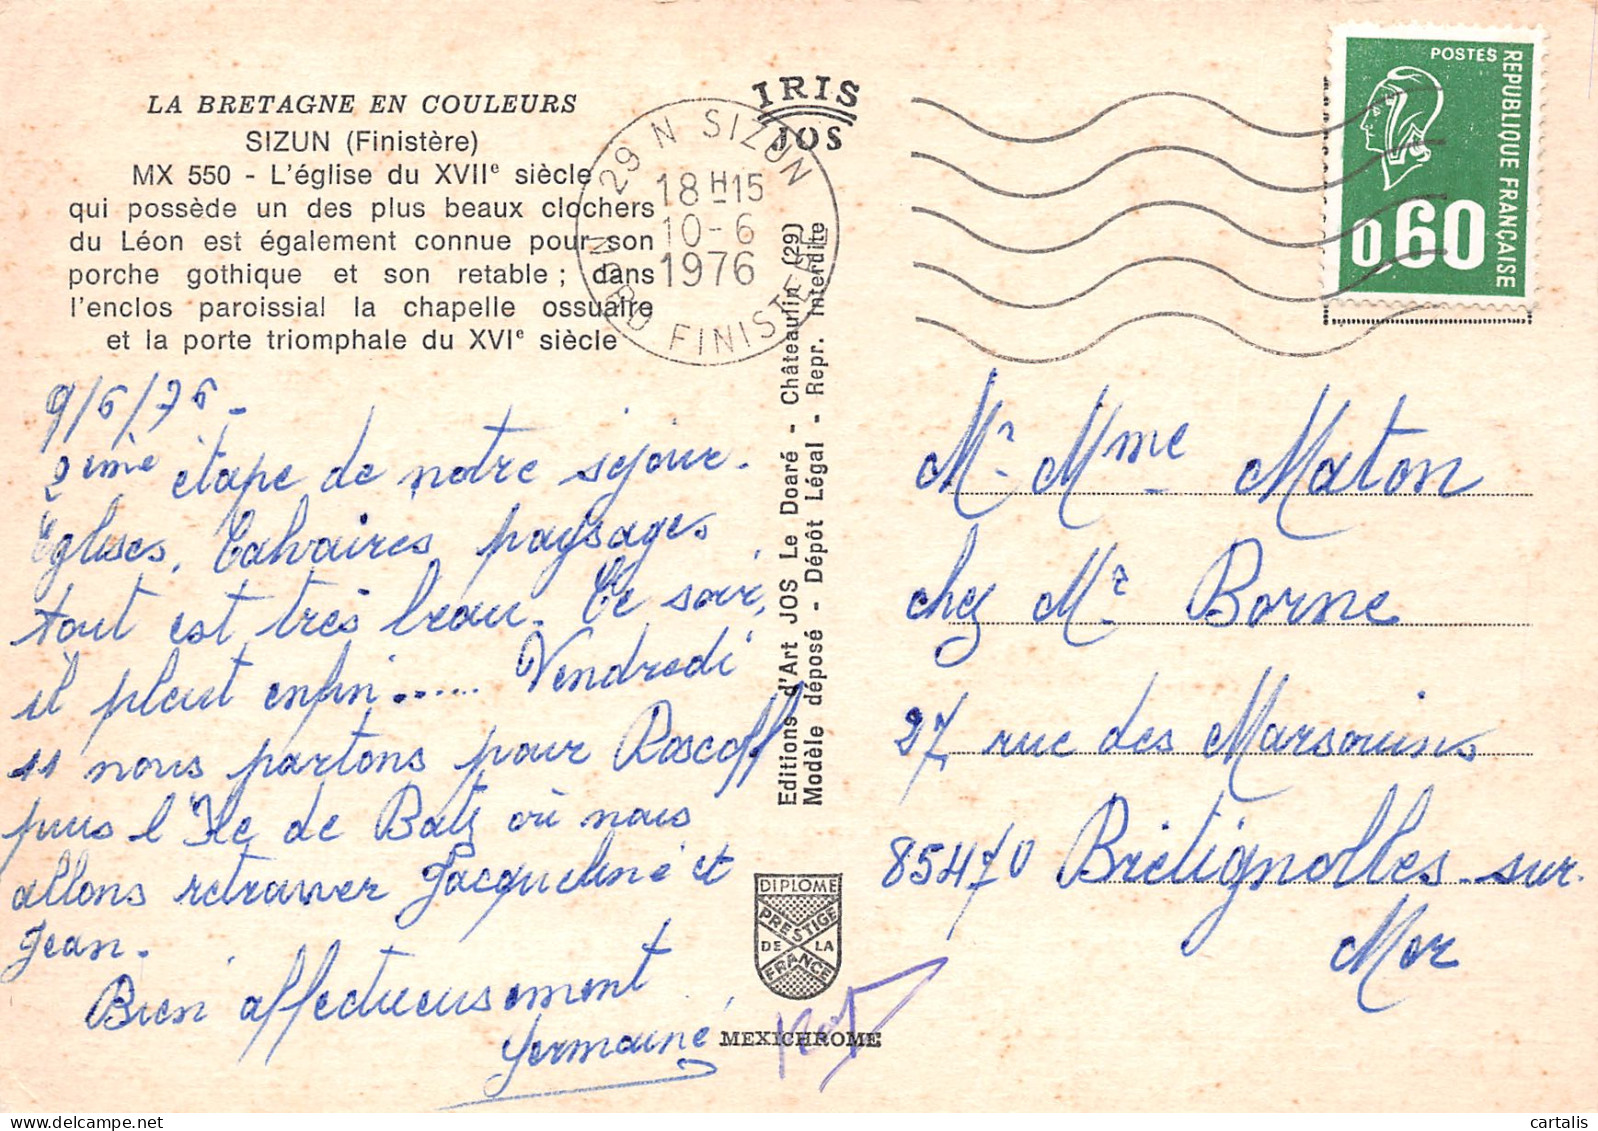 LA BRETAGNE EN COULEURS
SIZUN (Finistère)
MX 550 - L'église du XVIIe siècle
qui possède un des plus beaux clochers
du Léon est également connue pour son
porche gothique et son retable ; dans
l'enclos paroissial la chapelle ossuaire
et la porte triomphale du XVIe siècle
9/6/76 -
2ème étape de notre séjour.
Eglises, Calvaires, paysages
tout est très beau. Ce soir,
il pleut enfin...... Vendredi
11 nous partons pour Roscoff
puis l'Ile de Batz où nous
allons retrouver Jacqueline et
Jean.
Bien affectueusement
Germaine
IRIS
JOS
29 N SIZUN
18H15
10-6
1976
NORD FINISTERE
Editions d'Art JOS Le Doaré - Châteaulin (29)
Modèle déposé - Dépôt Légal - Repr. Interdite
DIPLOME
PRESTIGE
DE LA
FRANCE
MEXICHROME
POSTES
REPUBLIQUE FRANÇAISE
0,60
Mr Mme Maton
chez Mr Borne
27 rue des Marsouins
85470 Brétignolles sur
Mer
cartalis